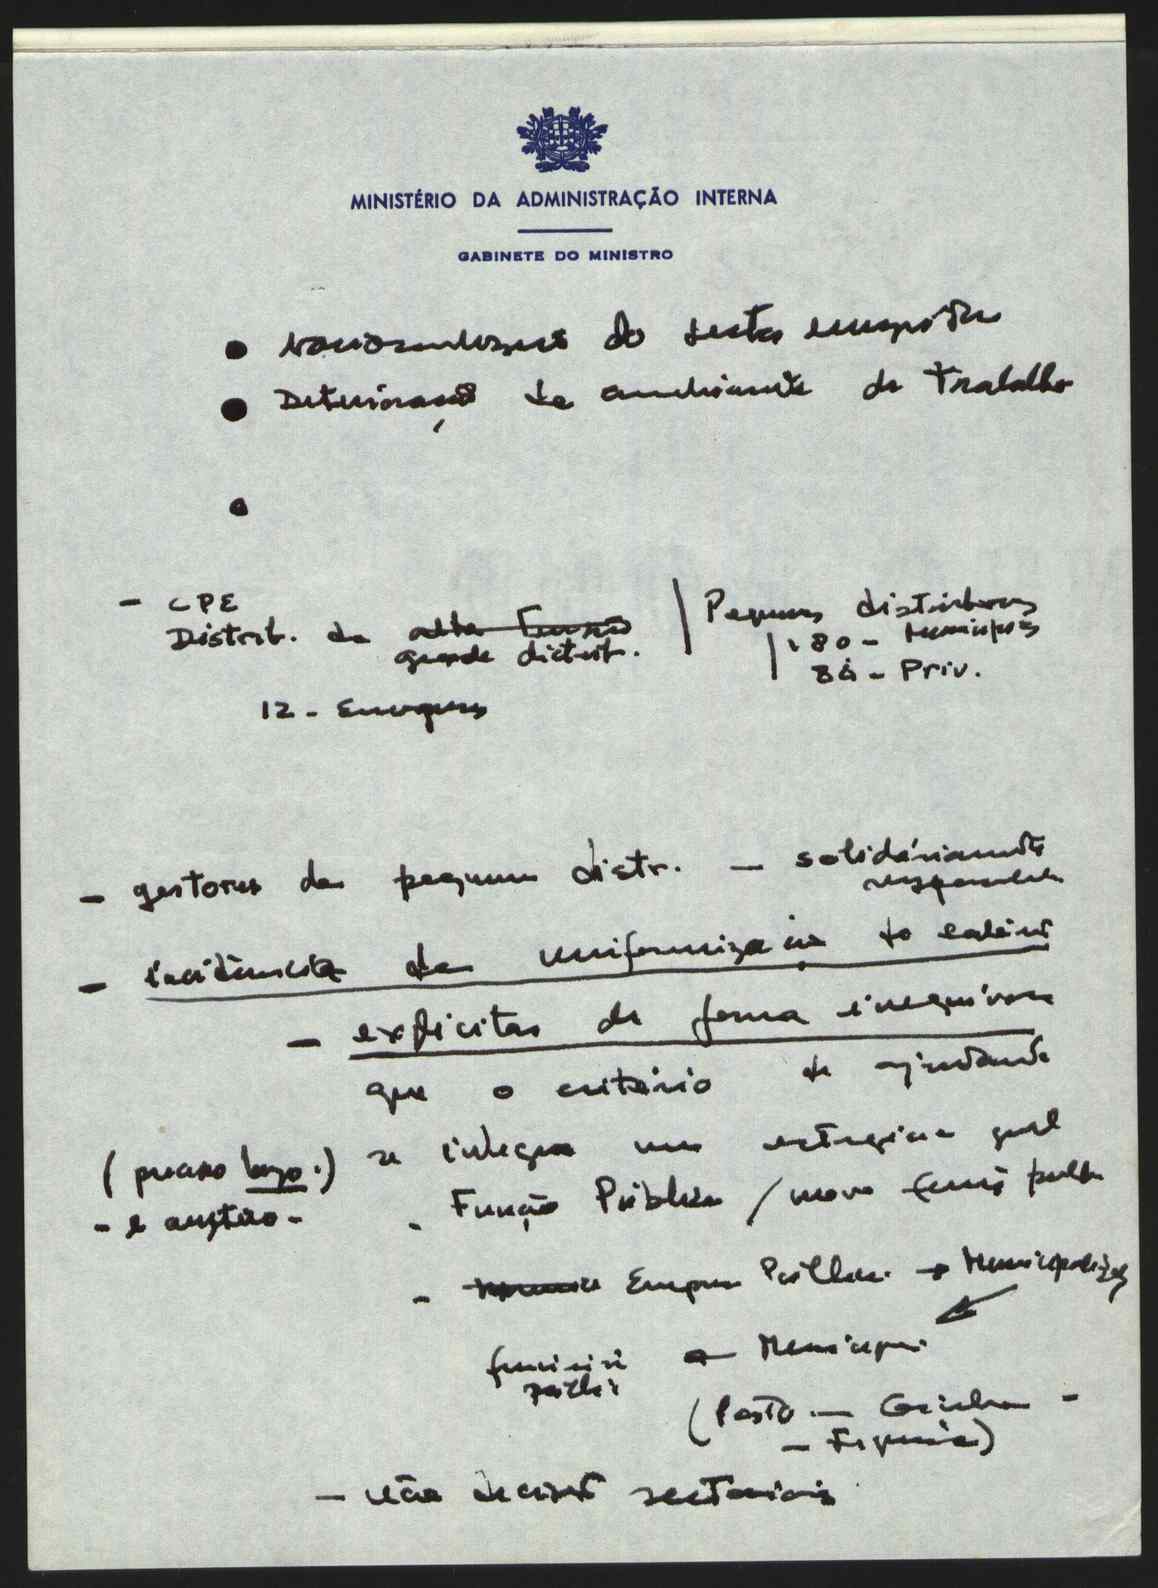 MINISTÉRIO DA ADMINISTRAÇÃO INTERNA
GABINETE DO MINISTRO
do sector energético
Deterioração do ambiente de trabalho
- CPE
Distrib. da alta tensão
grande distrib.
Pequenos distribuidores
180 - Municípios
- Priv.
12 - Empresas
- gestores da pequena distr. - solidáriamente
responsáveis
- incidência da uniformização do
- explicitar de forma inequívoca
que o critério de ajustamento
se integra numa estratégia geral
(processo longo.)
- e austero -
- Função Pública / novo
- Empresas Públicas → Municipalizados
← Municípios
(Porto - Coimbra -
- Figueira)
- não sectoriais